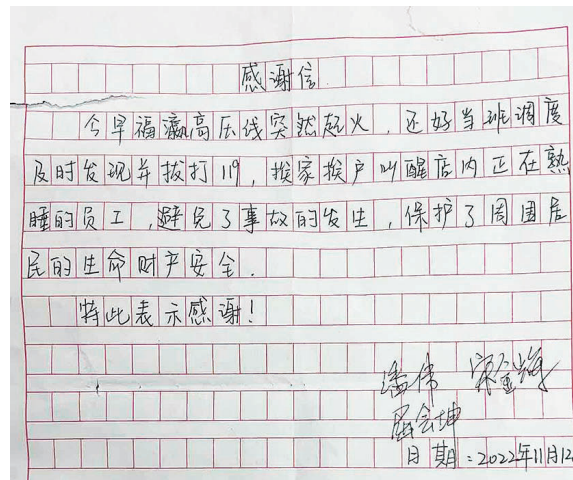 感谢信
今早福瀛高压线突然起火，还好当班调度
及时发现并拔打119，挨家挨户叫醒店内正在熟
睡的员工，避免了事故的发生，保护了周围居
民的生命财产安全．
特此表示感谢！
潘伟
屈会坤
日期：2022年11月12